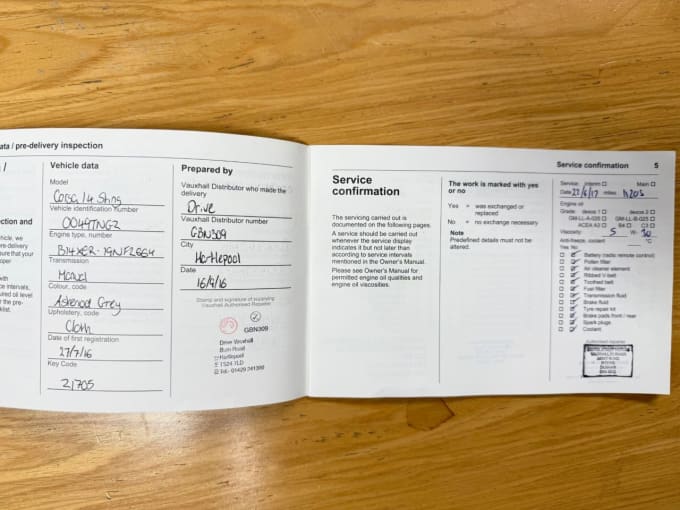 ata / pre-delivery inspection
Vehicle data
Model
Corsa 1.4 Sting
Vehicle identification number
Engine type, number
Transmission
Manual
Colour, code
Grey
Upholstery, code
Cloth
Date of first registration
27/7/16
Key Code
21705
Prepared by
Vauxhall Distributor who made the
delivery
Drive
Vauxhall Distributor number
GBN309
City
Hartlepool
Date
Stamp and signature of supplying
Vauxhall Authorised Repairer
GBN309
Drive Vauxhall
Burn Road
Hartlepool
Tel:- 01429
Service
confirmation
The servicing carried out is
documented on the following pages.
A service should be carried out
whenever the service display
indicates it but not later than
according to service intervals
mentioned in the Owner's Manual.
Please see Owner's Manual for
permitted engine oil qualities and
engine oil viscosities.
The work is marked with yes
or no
Yes = was exchanged or
replaced
No = no exchange necessary
Note
Predefined details must not be
altered.
Service confirmation 5
Service: Interim Main
Date miles
Engine oil
Grade: dexos 1 dexos 2
GM-LL-A-025 GM-LL-B-025
ACEA A3 B4 C3
Viscosity: 5 W- 30
Anti-freeze, coolant °C
Yes No
Battery (radio remote control)
Pollen filter
Air cleaner element
Ribbed V-belt
Toothed belt
Fuel filter
Transmission fluid
Brake fluid
Tyre repair kit
Brake pads front / rear
Spark plugs
Coolant
Authorised Repairer